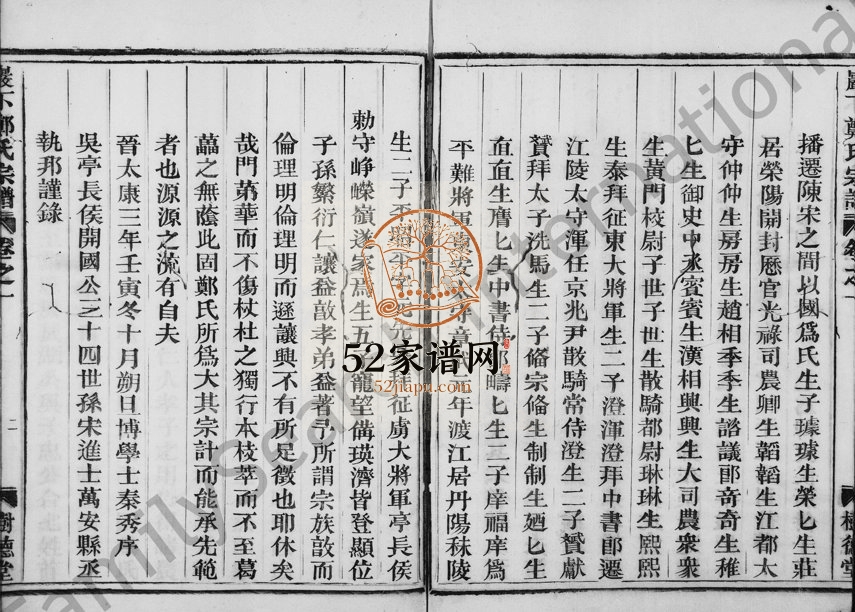 播遷陳宋之間以國爲氏生子璩璩生榮匕生莊
居滎陽開封厯官光祿司農卿生韜韜生江都太
守仲仲生房房生趙相季季生諮議郎奇奇生稚
匕生御史中丞賓賓生漢相興興生大司農衆衆
生黃門校尉子世子世生散騎都尉琳琳生熙熙
生泰拜征東大將軍生二子澄渾澄拜中書郎遷
江陵太守渾任京兆尹散騎常侍澄生二子贇獻
贇拜太子洗馬生二子脩宗脩生制制生廼匕生
直直生膺匕生中書侍郎疇匕生二子庠福庠爲
平難將軍 年渡江居丹陽秣陵
生二子 征虜大將軍亭長侯
勅守崢嶸嶺遂家焉生五 龍望備瑛濟皆登顯位
子孫繁衍仁讓益敦孝弟益著 所謂宗族敦而
倫理明倫理明而遜讓興不有所足徵也耶休矣
哉門第華而不傷杖杜之獨行本枝萃而不至葛
藟之無蔭此固鄭氏所爲大其宗計而能承先範
者也源源之流有自夫
晉太康三年壬寅冬十月朔旦博學士秦秀序
吳亭長侯開國公三十四世孫宋進士萬安縣丞
執邦謹錄
巖下鄭氏宗譜 卷之一
二
樹德堂
巖下鄭氏宗譜
樹德堂
52家谱网
52jiapu.com
FamilySearch International